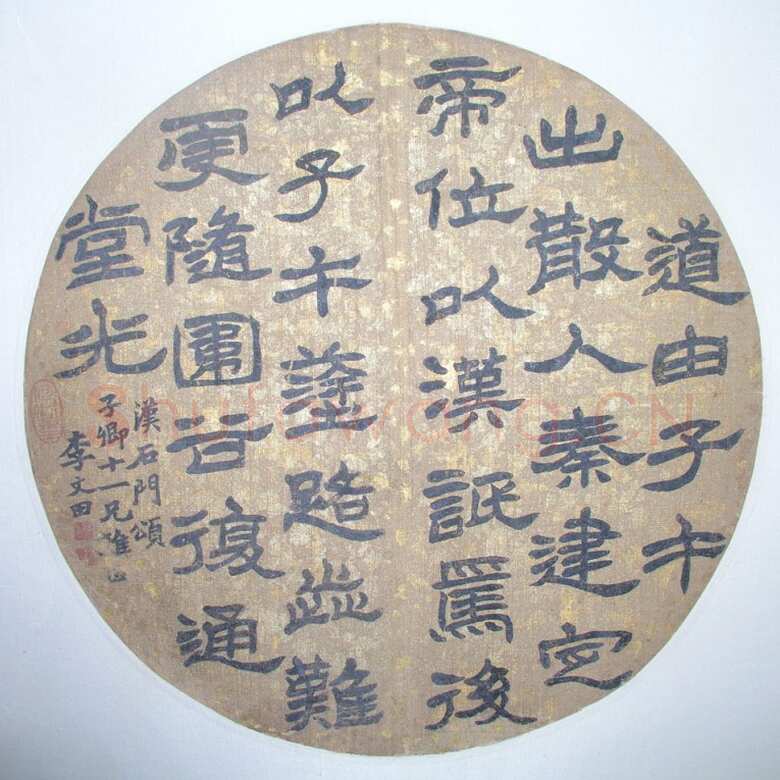 道由子午
出散入秦建定
帝位以漢詆焉後
以子午塗路歰難
更隨圍谷復通
堂光
漢石門頌
子卿十一兄雅正
李文田
Shufawang.CN